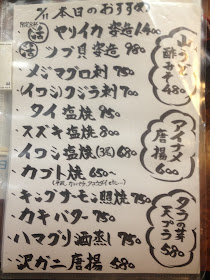 4/11 本日のおすすめ
活 ヤリイカ 姿造 1400
活 ツブ貝 姿造 980
・メジマグロ刺 750
・(イワシ)クジラ刺 700
・タイ塩焼 750
・スズキ塩焼 800
・イワシ塩焼(3尾) 680
・カブト焼 650〜
・キングサーモン照焼 750
・カキバター 750
・ハマグリ酒蒸し 750
・沢ガニ唐揚 680
酢
580
アイナメ
唐揚
600
タラの芽
天プラ
580